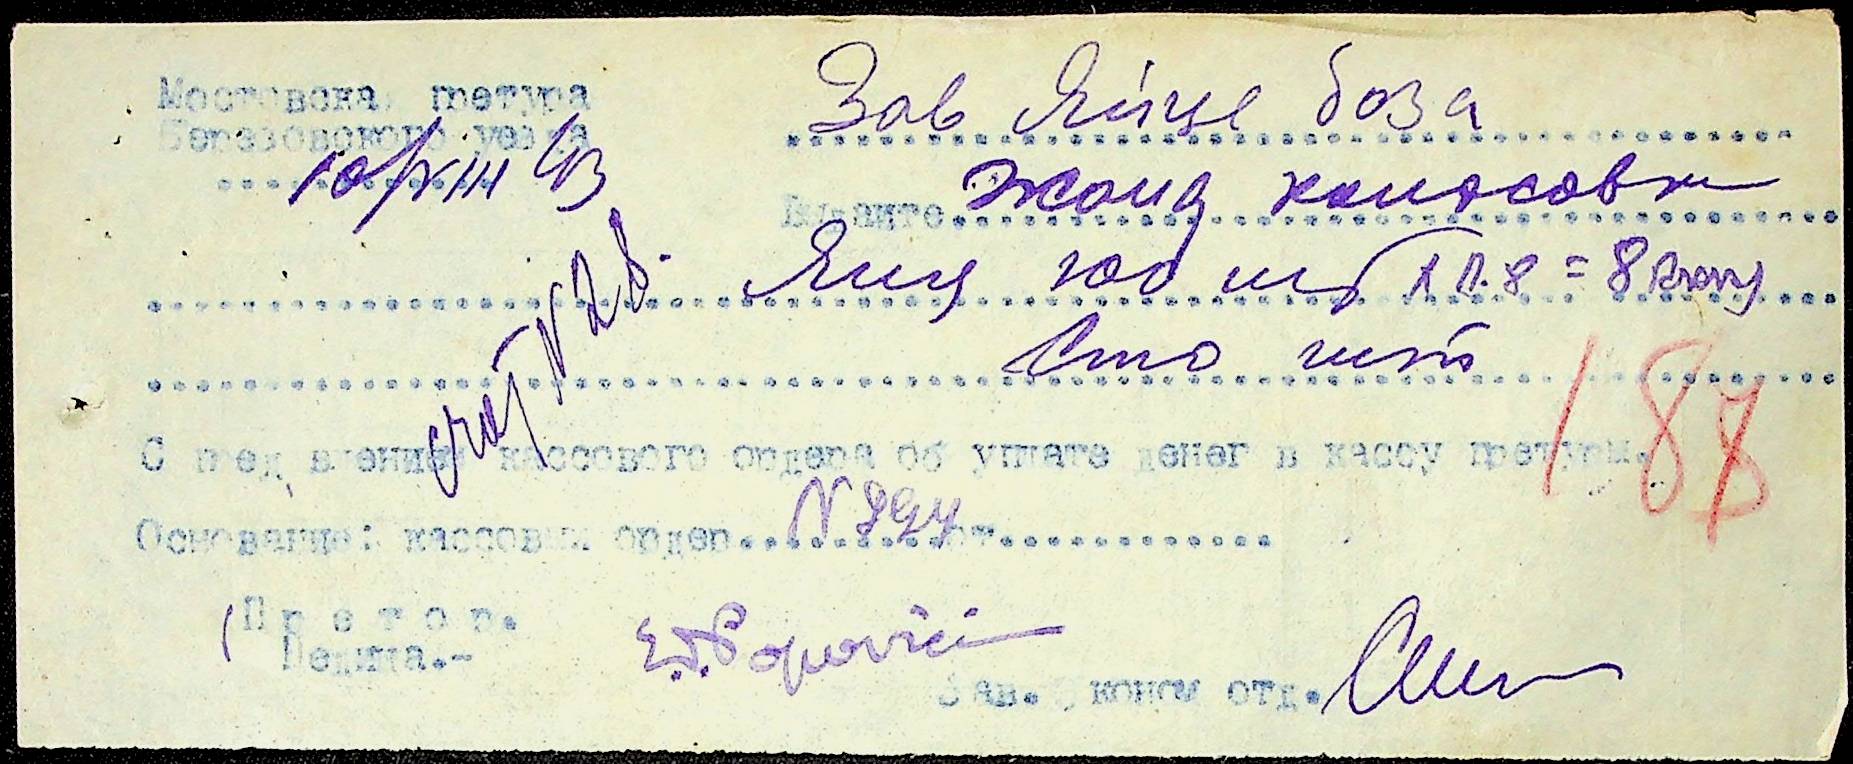 Мостовска претура
Березовского уезда
10/VIII 43
Зав Яйце боза
Выдайте Жанд
Яиц 100 шт п. 8 = 8
Сто шт
счот N 28.
188
С пред влением кассового ордера об уплате денег в кассу претуры.
Основание: кассовый ордер N 894 от
Претор.
Popovici
Зав. Эконом отд.